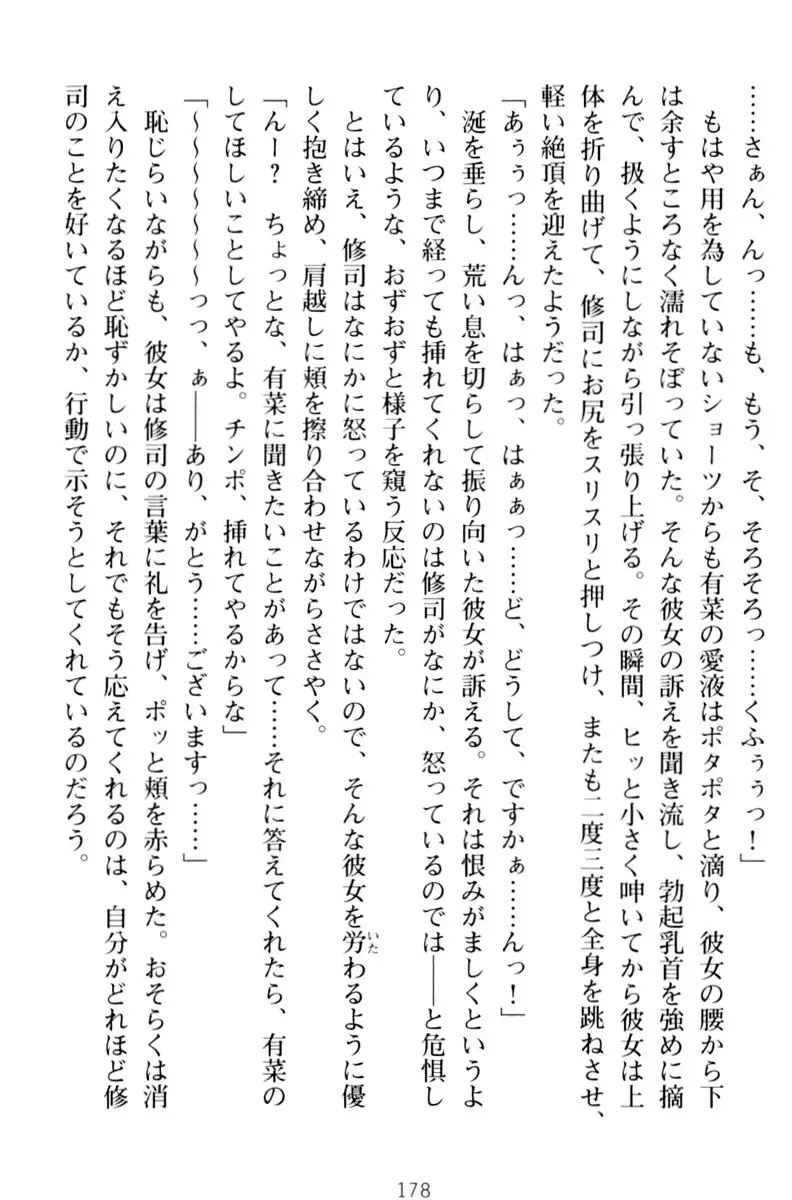 ……さぁん、んっ……も、もう、そ、そろそろっ……くふぅぅっ！」
　もはや用を為していないショーツからも有菜の愛液はポタポタと滴り、彼女の腰から下
は余すところなく濡れそぼっていた。そんな彼女の訴えを聞き流し、勃起乳首を強めに摘
んで、扱くようにしながら引っ張り上げる。その瞬間、ヒッと小さく呻いてから彼女は上
体を折り曲げて、修司にお尻をスリスリと押しつけ、またも二度三度と全身を跳ねさせ、
軽い絶頂を迎えたようだった。
「あぅぅっ……んっ、はぁっ、はぁぁっ……ど、どうして、ですかぁ……んっ！」
　涎を垂らし、荒い息を切らして振り向いた彼女が訴える。それは恨みがましくというよ
り、いつまで経っても挿れてくれないのは修司がなにか、怒っているのでは――と危惧し
ているような、おずおずと様子を窺う反応だった。
　とはいえ、修司はなにかに怒っているわけではないので、そんな彼女を労わるように優
いた
しく抱き締め、肩越しに頬を擦り合わせながらささやく。
「んー？　ちょっとな、有菜に聞きたいことがあって……それに答えてくれたら、有菜の
してほしいことしてやるよ。チンポ、挿れてやるからな」
「～～～～～～～っっ、ぁ――あり、がとう……ございますっ……」
　恥じらいながらも、彼女は修司の言葉に礼を告げ、ポッと頬を赤らめた。おそらくは消
え入りたくなるほど恥ずかしいのに、それでもそう応えてくれるのは、自分がどれほど修
司のことを好いているか、行動で示そうとしてくれているのだろう。
178